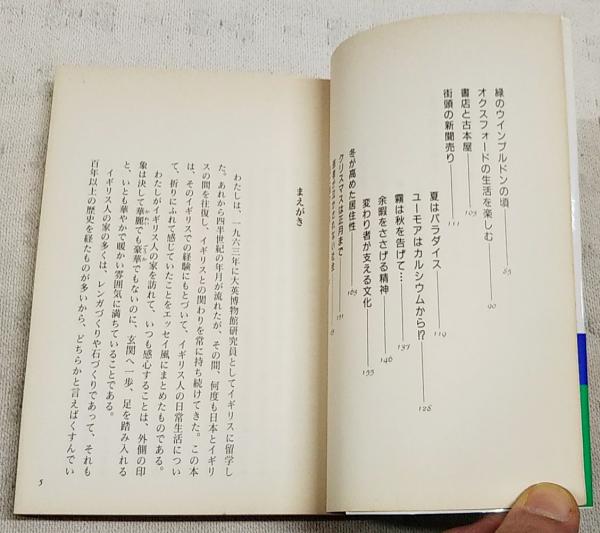 緑のウインブルドンの頃 85
オクスフォードの生活を楽しむ 90
書店と古本屋 103
街頭の新聞売り 111
夏はパラダイス 119
ユーモアはカルシウムから!? 128
霧は秋を告げて… 137
余暇をささげる精神 146
変わり者が支える文化 155
冬が高めた居住性 163
クリスマスは正月まで 171
まえがき
わたしは、一九六三年に大英博物館研究員としてイギリスに留学し
た。あれから四半世紀の年月が流れたが、その間、何度も日本とイギリ
スの間を往復し、イギリスとの関わりを常に持ち続けてきた。この本
は、そのイギリスでの経験にもとづいて、イギリス人の日常生活につい
て、折りにふれて感じていたことをエッセイ風にまとめたものである。
わたしがイギリス人の家を訪れて、いつも感心することは、外側の印
象は決して華麗でも豪華でもないのに、玄関へ一歩、足を踏み入れる
と、いとも華やかで暖かい雰囲気に満ちていることである。
イギリス人の家の多くは、レンガづくりや石づくりであって、それも
百年以上の歴史を経たものが多いから、どちらかと言えばくすんでい
5